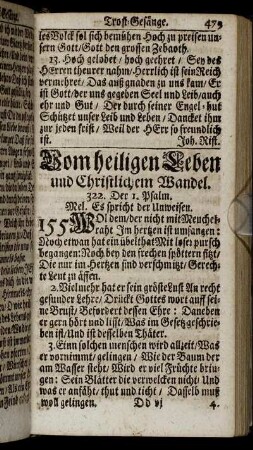 Trost-Gesänge. 479
les Volck sol sich bemühen Hoch zu preisen un-
sern Gott/Gott den grossen Zebaoth.
13. Hoch gelobet/ hoch geehret/ Sey des
HErren theurer nahm/ Herrlich ist sein Reich
vermehret/ Das auß gnaden zu uns kam/ Er
ist Gott/der uns gegeben Seel und Leib/auch
ehr und Gut/ Der durch seiner Engel-hut
Schützet unser Leib und Leben/ Dancket ihm
zur jeden frist/ Weil der HErr so freundlich
ist. Joh. Rist.
Vom heiligen Leben
und Christlichem Wandel.
322. Der 1. Psalm.
Mel. Es spricht der Unweisen.
155 WOl dem/der nicht mit Meuchel-
raht Im hertzen ist umfangen:
Noch etwan hat ein übelthat Mit böser pursch
begangen: Noch bey den frechen spöttern sitzt/
Die nur im Hertzen sind verschmitzt/ Gerech-
te Leut zu äffen.
2. Vielmehr hat er sein gröste Lust An recht
gesunder Lehre/ Drückt Gottes wort auff sei-
ne Brust/ Befordert dessen Ehre: Daneben
er gern hört und list/ Was im Gesetz geschrie-
ben ist/ Und ist desselben Thäter.
3. Einn solchen menschen wird allzeit/ Was
er vornimmt/ gelingen/ Wie der Baum der
am Wasser steht/ Wird er viel Früchte brin-
gen: Sein Blätter die verwelcken nicht/ Und
was er anfäht/ thut und ticht/ Dasselb muß
wol gelingen. Dd vj 4.